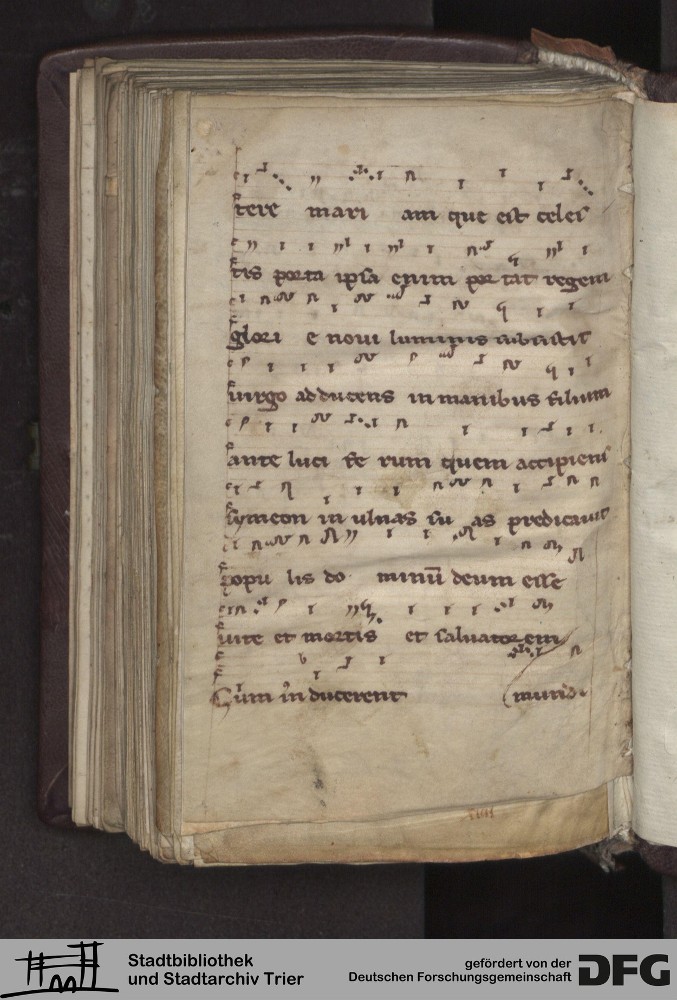 tere mari am que est celes
tis porta ipsa enim portat regem
glori e noui luminis subsistit
uirgo adducens in manibus filium
ante luci fe rum quem accipiens
symeon in ulnas su as predicauit
popu lis do minū deum esse
uite et mortis et saluatorem
Cum in ducerent mundi.
Stadtbibliothek
und Stadtarchiv Trier
gefördert von der
Deutschen Forschungsgemeinschaft
DFG